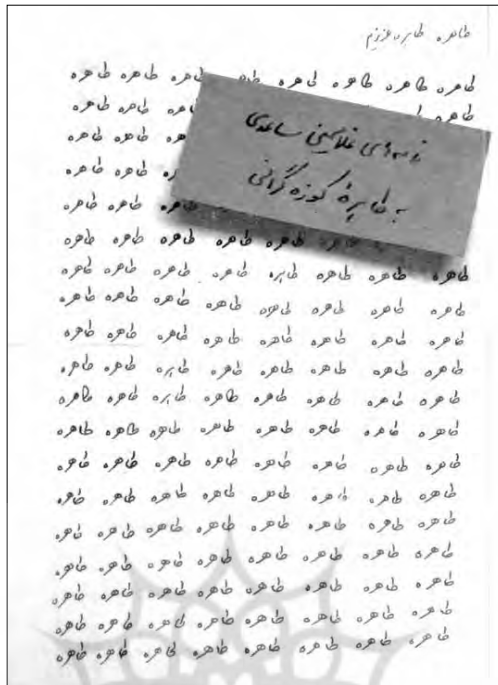 طاهره طاهره عزیزم
طاهره طاهره طاهره طاهره طاهره طاهره طاهره طاهره طاهره
طاهره طاهره طاهره
طاهره طاهره
طاهره طاهره
نامه‌های غلامحسین ساعدی
به طاهرهٔ کوزه‌گرانی
طاهره طاهره طاهره
طاهره طاهره طاهره طاهره طاهره
طاهره طاهره طاهره طاهره طاهره طاهره طاهره طاهره
طاهره طاهره طاهره طاهره طاهره طاهره طاهره طاهره
طاهره طاهره طاهره طاهره طاهره طاهره طاهره طاهره
طاهره طاهره طاهره طاهره طاهره طاهره طاهره طاهره
طاهره طاهره طاهره طاهره طاهره طاهره طاهره طاهره
طاهره طاهره طاهره طاهره طاهره طاهره طاهره طاهره
طاهره طاهره طاهره طاهره طاهره طاهره طاهره طاهره
طاهره طاهره طاهره طاهره طاهره طاهره طاهره طاهره
طاهره طاهره طاهره طاهره طاهره طاهره طاهره طاهره
طاهره طاهره طاهره طاهره طاهره طاهره طاهره طاهره
طاهره طاهره طاهره طاهره طاهره طاهره طاهره طاهره
طاهره طاهره طاهره طاهره طاهره طاهره طاهره طاهره
طاهره طاهره طاهره طاهره طاهره طاهره طاهره طاهره